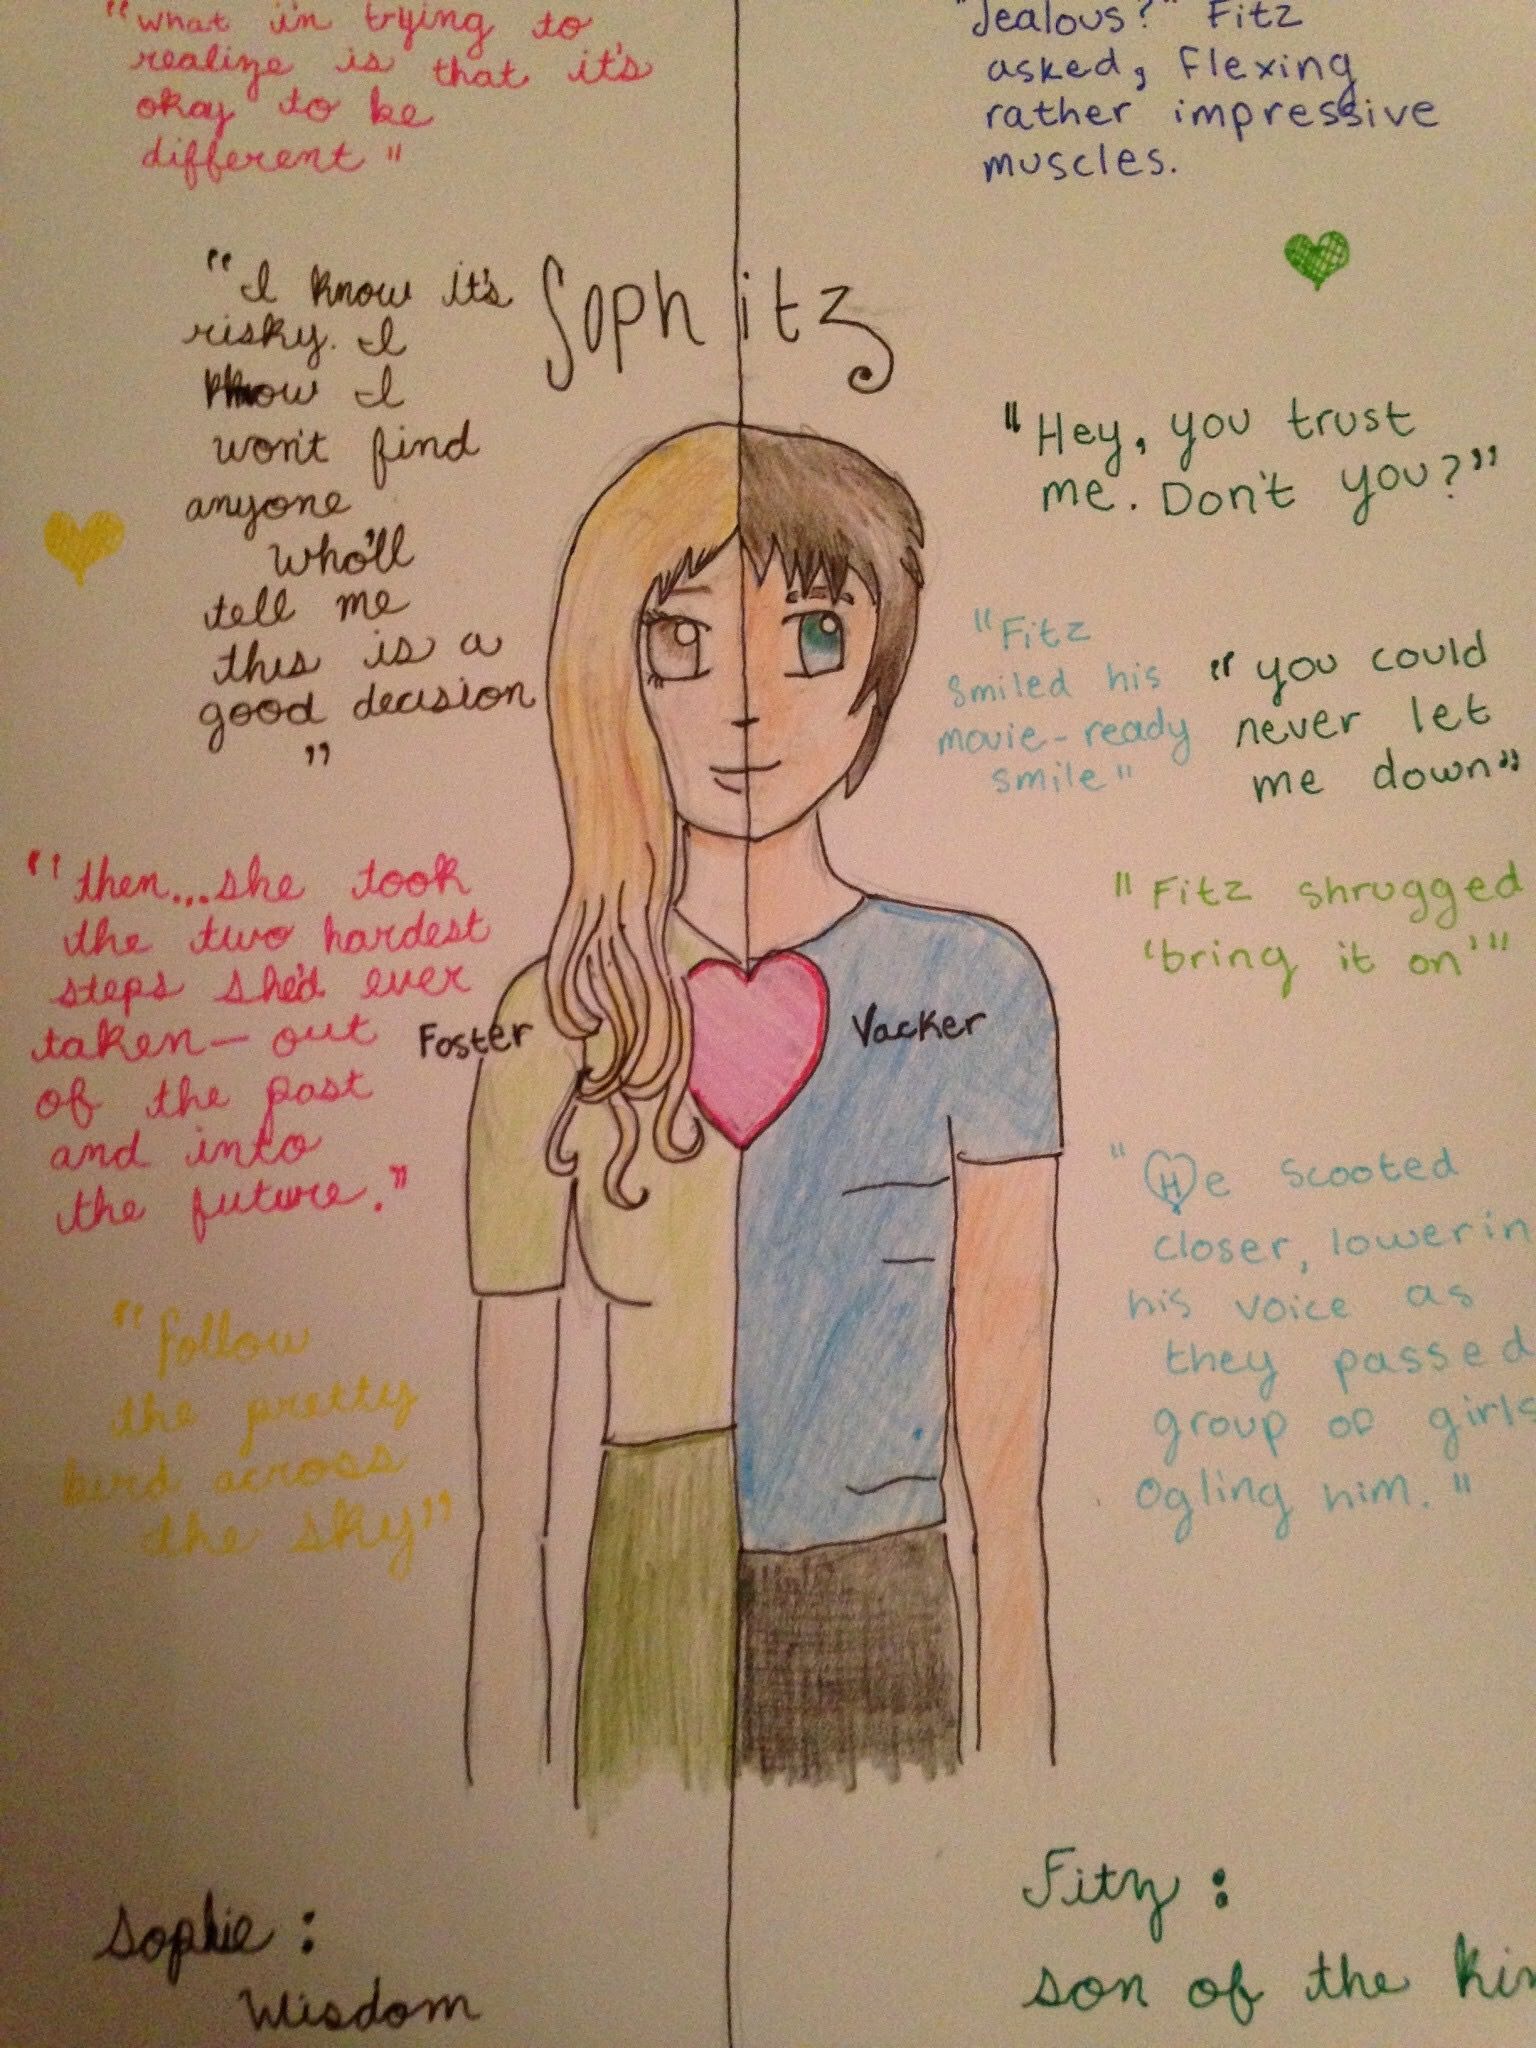 "What i'm trying to
realize is that it's
okay to be
different"
"I know it's
risky. I
know I
won't find
anyone
who'll
tell me
this is a
good decision
"
"then...she took
the two hardest
steps she'd ever
taken- out
of the past
and into
the future."
"follow
the pretty
bird across
the sky"
Sophie:
Wisdom
Sophitz
Foster
Vacker
"Jealous?" Fitz
asked, flexing
rather impressive
muscles.
"Hey, you trust
me. Don't you?"
"Fitz
smiled his
movie-ready
smile"
"you could
never let
me down"
"Fitz shrugged
'bring it on'"
"He scooted
closer, lowerin
his voice as
they passed
group of girls
ogling him."
Fitz:
son of the kin